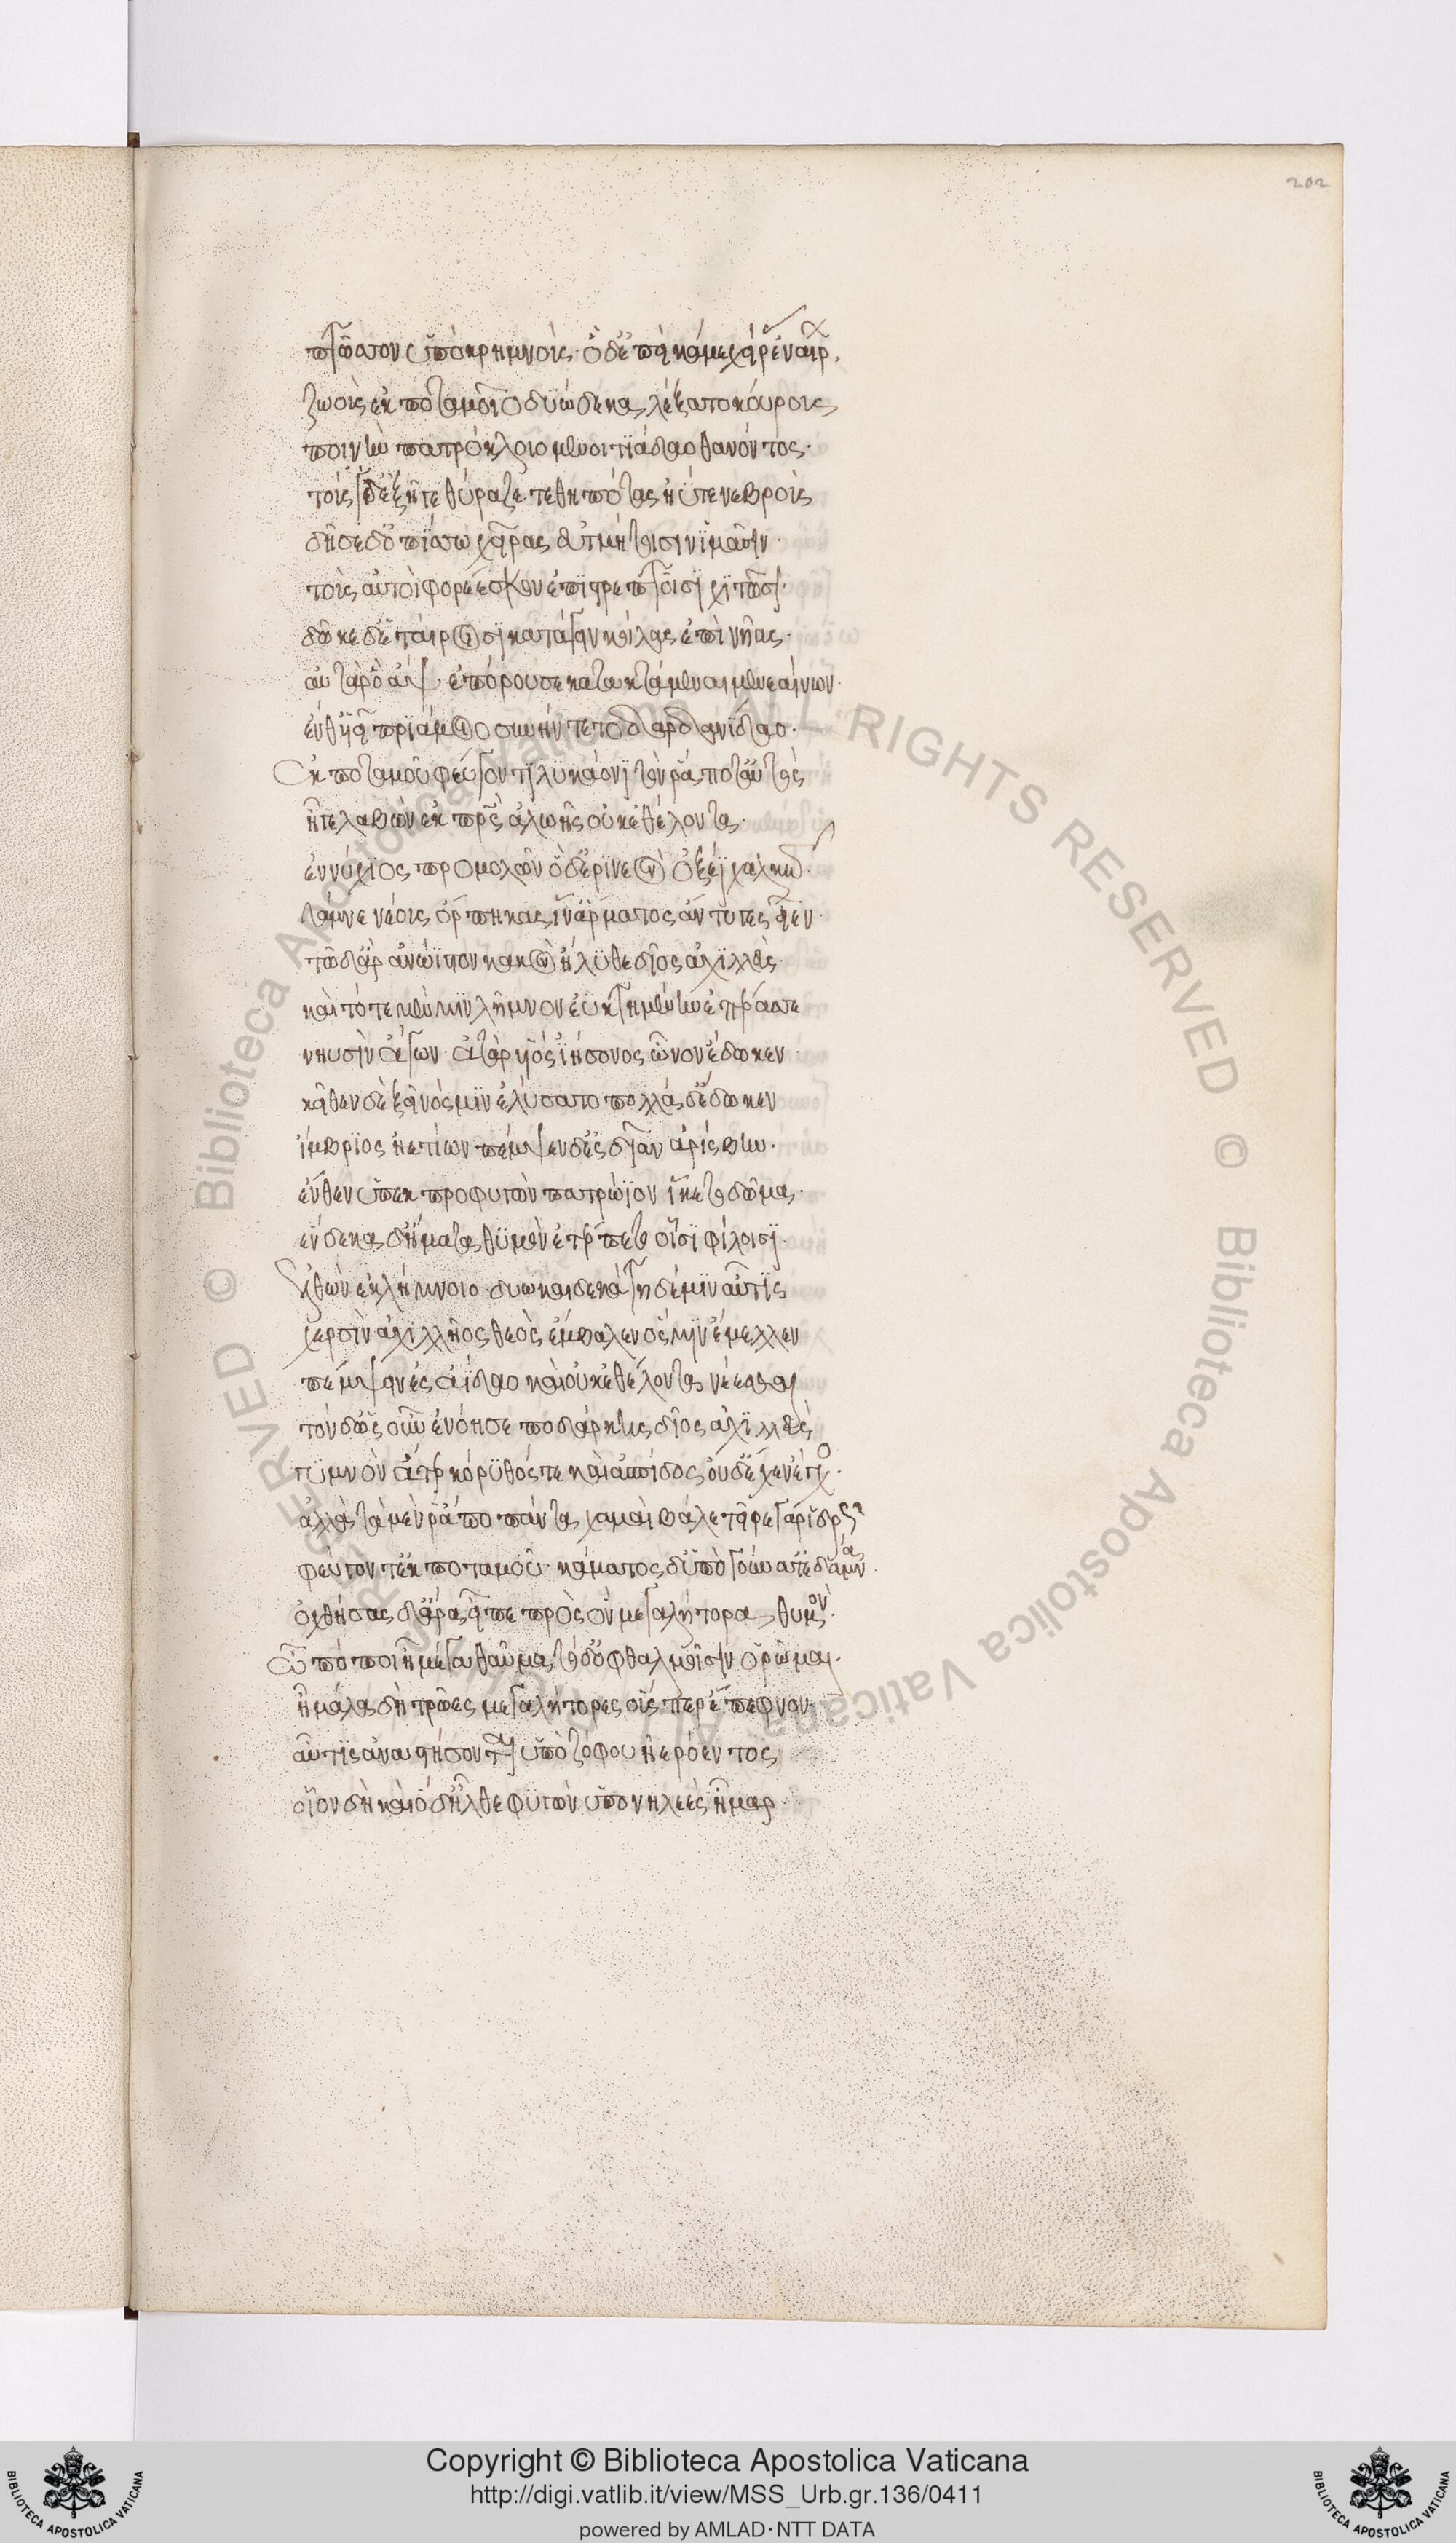 202
πτῶσσον ὑπὸ κρημνούς· ὁ δ' ἐπεὶ κάμε χεῖρας ἐναίρων,
ζωοὺς ἐκ ποταμοῖο δυώδεκα λέξατο κούρους
ποινὴν πατρόκλοιο μενοιτιάδαο θανόντος·
τοὺς ἐξῆγε θύραζε τεθηπότας ἠΰτε νεβρούς
δῆσε δ' ὀπίσσω χεῖρας ἐϋτμήτοισιν ἱμᾶσιν·
τοὺς αὐτοὶ φορέεσκον ἐπὶ στρεπτοῖσι χιτῶσι·
δῶκε δ' ἑταίροισι κατάγειν κοίλας ἐπὶ νῆας·
αὐτὰρ ὁ ἂψ ἐπόρουσε κατακτάμεναι μενεαίνων·
ἔνθ' υἷϊ πριάμοιο συνήντετο δαρδανίδαο·
Ἐκ ποταμοῦ φεύγοντι λυκάονι τόν ῥά ποτ' αὐτὸς
ἦγε λαβὼν ἐκ πατρὸς ἀλωῆς οὐκ ἐθέλοντα·
ἐννύχιος προμολών· ὁ δ' ἐρινεὸν ὀξέϊ χαλκῷ
τάμνε νέους ὄρπηκας ἵν' ἅρματος ἄντυγες εἶεν·
τῷ δ' ἄρ' ἀνώϊστον κακὸν ἤλυθε δῖος ἀχιλλεύς·
καὶ τότε μέν μιν λῆμνον ἐϋκτιμένην ἐπέρασσε
νηυσὶν ἄγων· ἀτὰρ υἱὸς ἰήσονος ὦνον ἔδωκεν·
κεῖθεν δὲ ξεῖνός μιν ἐλύσατο πολλὰ δ' ἔδωκεν
ἴμβριος ἠετίων πέμψεν δ' ἐς δῖαν ἀρίσβην·
ἔνθεν ὑπεκπροφυγὼν πατρώϊον ἵκετο δῶμα·
ἕνδεκα δ' ἤματα θυμὸν ἐτέρπετο οἷσι φίλοισι·
Ἐλθὼν ἐκ λήμνοιο· δυωκαιδεκάτῃ δέ μιν αὖτις
χερσὶν ἀχιλλῆος θεὸς ἔμβαλεν ὅς μιν ἔμελλεν
πέμψειν εἰς ἀΐδαο καὶ οὐκ ἐθέλοντα νέεσθαι
τὸν δ' ὡς οὖν ἐνόησε ποδάρκης δῖος ἀχιλλεὺς
γυμνὸν ἄτερ κόρυθός τε καὶ ἀσπίδος οὐδ' ἔχεν ἔγχος·
ἀλλὰ τὰ μέν ῥ' ἀπὸ πάντα χαμαὶ βάλε τεῖρε γὰρ ἱδρώς
φεύγοντ' ἐκ ποταμοῦ· κάματος δ' ὑπὸ γούνατ' ἐδάμνα·
ὀχθήσας δ' ἄρα εἶπε πρὸς ὃν μεγαλήτορα θυμόν·
Ὢ πόποι ἦ μέγα θαῦμα τόδ' ὀφθαλμοῖσιν ὁρῶμαι·
ἦ μάλα δὴ τρῶες μεγαλήτορες οὕς περ ἔπεφνον·
αὖτις ἀναστήσονται ὑπὸ ζόφου ἠερόεντος
οἷον δὴ καὶ ὅδ' ἦλθε φυγὼν ὕπο νηλεὲς ἦμαρ·
Copyright © Biblioteca Apostolica Vaticana
http://digi.vatlib.it/view/MSS_Urb.gr.136/0411
powered by AMLAD·NTT DATA